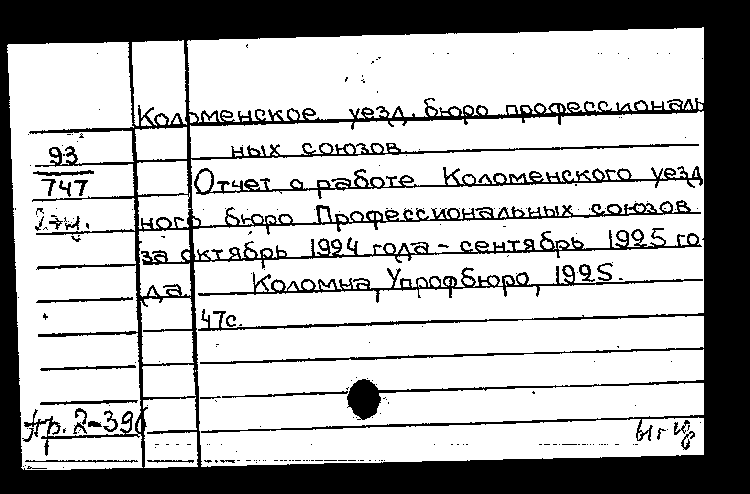 Коломенское уезд. бюро профессиональ
ных союзов
93
747
2 эк.
Отчет о работе Коломенского уезд
ного бюро Профессиональных союзов
за октябрь 1924 года - сентябрь 1925 го
да. Коломна, Упрофбюро, 1925.
47с.
пр. 2-396